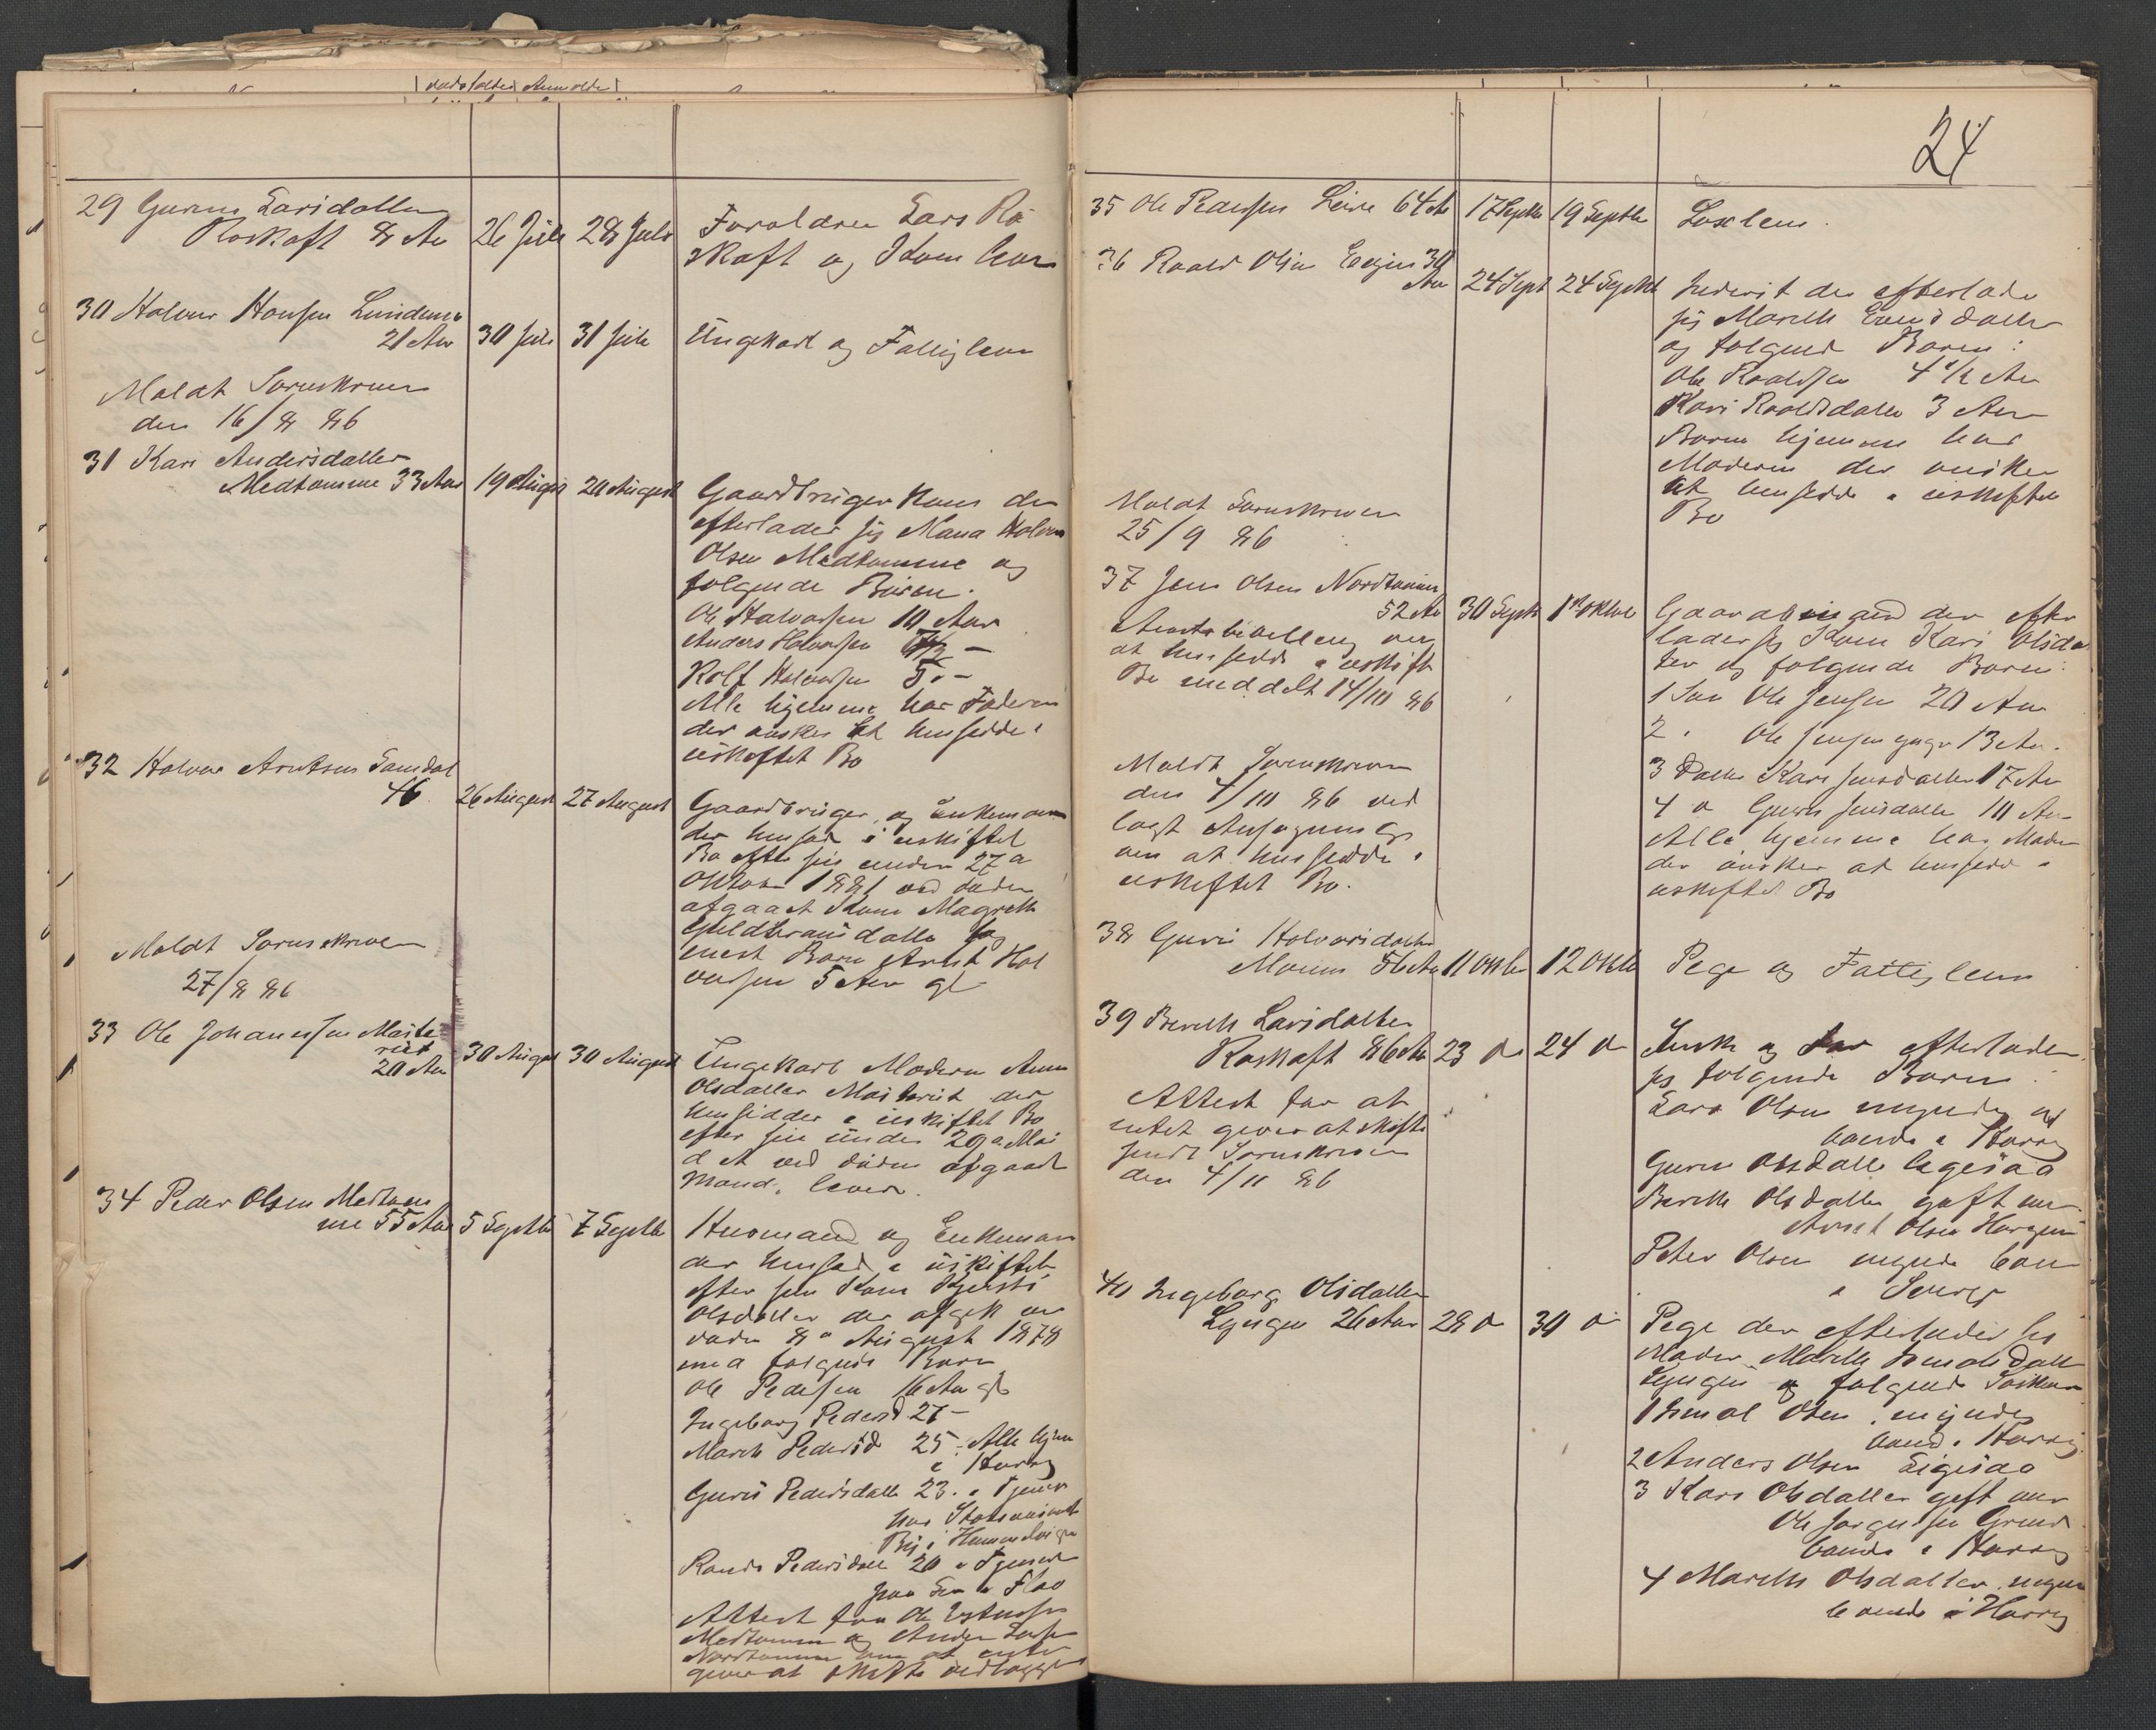 29 Guren Larsdatter
Roskaft 8 Aar
26 Juli
28 Juli
Foraldre Lars Ro
skaft og Kone lever
30 Halvor Hansen Lundemo
21 Aar
30 Juli
31 Juli
Ungkarl og Fattiglem
Meldt Sorenskriver
den 16/8 86
31 Kari Andersdatter
Medtomme 33 Aar
19 August
20 August
Gaardbruger Kone der
efterlader sig Mand Halvor
Olsen Medtomme og
folgende Börn.
Ole Halvorsen 10 Aar
Anders Halvorsen 7 1/2 -
Rolf Halvorsen 5 -
Alle hjemme hos Faderen
der ønsker at hensidde i
uskiftet Bo
32 Halvor Arntsen Samdal
46
26 August
27 August
Gaardbruger og Enkemand
der hensad i uskiftet
Bo efter sin under 27 d
Oktober 1881 ved døden
afgaaet Kone Magreth
Guldbransdatter og
enest Barn Arnt Hal
vorsen 5 Aar gl
Meldt Sorenskriver
27/8 86
33 Ole Johannesen Maste
rud
20 Aar
30 August
30 August
Ungekarl Moderen Anne
Olsdatter Masterud der
hensidder i uskiftet Bo
efter sin under 29 d Mai
d A ved døden afgaaede
Mand, lever.
34 Peder Olsen Medtom
me 55 Aar
5 Septbr
7 Septbr
Husmand og Enkemand
der hensad i uskiftet
efter sin Kone Kjersti
Olsdatter der afgik ved
døden 8 d August 1878
med folgende Børn
Ole Pedersen 16 Aar gl
Ingeborg Pedersd 27 -
Marith Pedersd 25 - Alle hjem
i Horrig
Guru Pedersdatter 23. i Tjeneste
hos
i Hommelvigen
Randi Pedersdatter 20 i Tjeneste
paa i Flaa
Attest fra Ole Estensen
Medtomme og Anders Larsen
Nordtomme om at intet
gives at skifte vedlagges
24
35 Ole Pedersen Leire 64 Aar
17 Septbr
19 Septbr
Loslem.
36 Roald Olsen Eggen 30
Aar
24 Sept
24 Septbr
Inderst der efterlader
sig Marith Evensdatter
og folgende Børen:
Ole Roaldsen 4 1/2 Aar
Kari Roaldsdatter 3 Aar
Børn hjemme hos
Moderen der ønsker
at hensidde i uskiftet
Bo
Meldt Sorenskriver
25/9 86
37 Jens Olsen Nordtomme
52 Aar
30 Septbr
1 Oktober
Gaardmand der efter
lader sig Kone Kari Olsdat
ter og folgende Børn:
1 Søn Ole Jensen 20 Aar
2 " Ole Jensen yngre 13 Aar.
3 Datter Kari Jensdatter 17 Aar
4 d Guru Jensdatter 10 Aar
Alle hjemme hos Moder
der ønsker at hensidde i
uskiftet Bo
Amtsbevilling om
at hensidde i uskiftet
Bo meddelt 14/10 86
Meldt Sorenskriver
den 4/10 86 ved
lagt Ansøgning
om at hensidde i
uskiftet Bo.
38 Guru Halvorsdatter
Moum 56 Aar
11 Oktbr
12 Oktbr
Pege og Fattiglem
39 Bereth Larsdatter
Roskaft 86 Aar
23 d
24 d
Enke og efterlader
sig folgende Børn:
Lars Olsen myndig og
boende i Horrig
Guren Olsdatter ligesaa
Bereth Olsdatter gift med
Arnt Olsen Horgen
Peter Olsen myndig boen
i
Attest for at
intet gives at skifte
sendt Sorenskriver
den 4/11 86
40 Ingeborg Olsdatter
Lyngen 26 Aar
28 d
30 d
Pege der efterlader sig
Moder Marith Ismalsdatter
Lyngen og folgende Søsken
1 Ismal Olsen, myndig
boend i Horrig
2 Anders Olsen Ligesaa
3 Kari Olsdatter gift med
Ole Jørgensen Grind
boende i Horrig
4 Marith Olsdatter myn
boende i Horrig